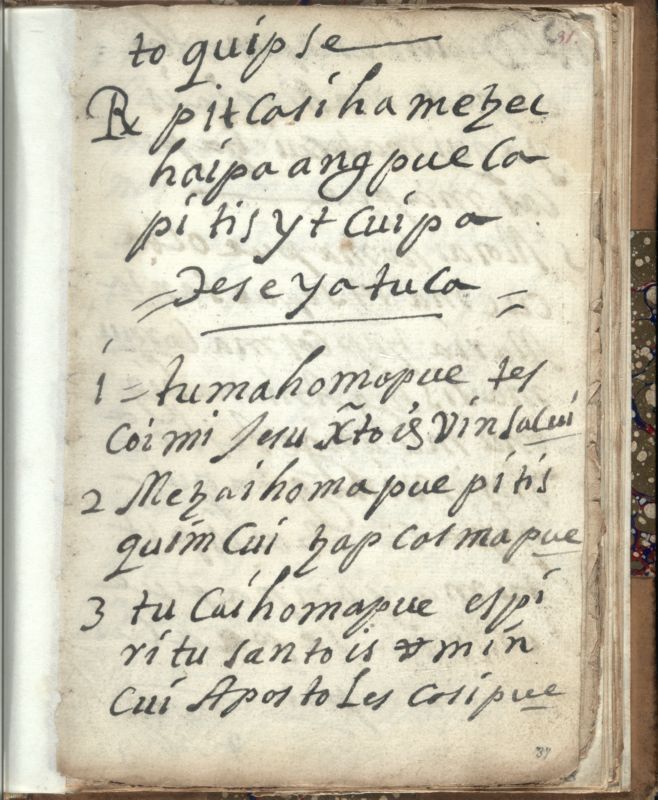 31.
to quipse
℞ pit Cosi ha metzec
haipa ang pue Ca
pitis yt Cuipa
= Jese ya tuCa =
1 = tumahomapue tes
Coimi Jesu Xto is vin saCui
2 Metzaihomapue pitis
quim Cui tzap cosmapue
3 tu Caihomapue espi
ritu santo is min
Cui Apostoles Cosipue
37